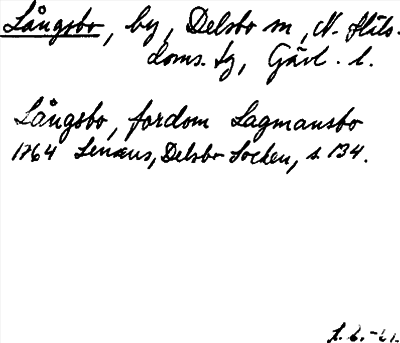 Långsbo, by, Delsbo sn, N. Häls-
doms. tg, Gävl. l.
Långsbo, fordom Lagmansbo
1764 Lenæus, Delsbo Socken, s. 134.